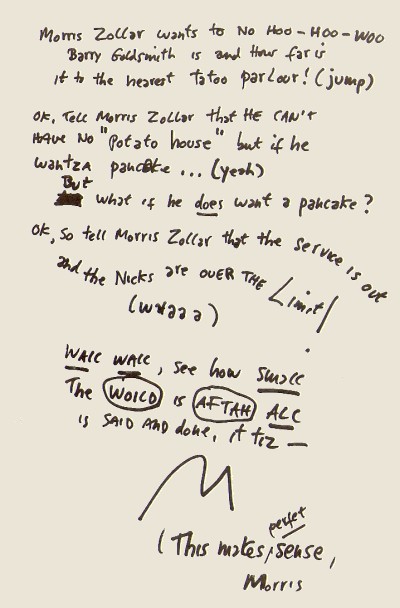 Morris Zollar wants to No Hoo-Hoo-Woo
Barry Goldsmith is and How far is
it to the nearest tatoo parlour! (jump)
OK, Tell Morris Zollar that HE CAN'T
HAVE NO "Potato house" but if he
wantZA pancake ... (yeah)
But
what if he does want a pancake?
OK, So tell Morris Zollar that the service is out
and the Nicks are OVER THE Limit!
(waaaa)
WALL WALL, see how SMALL
The WOILD is AFTAH ALL
is SAID AND done, it tiz —
M
(This makes perfet sense,
Morris